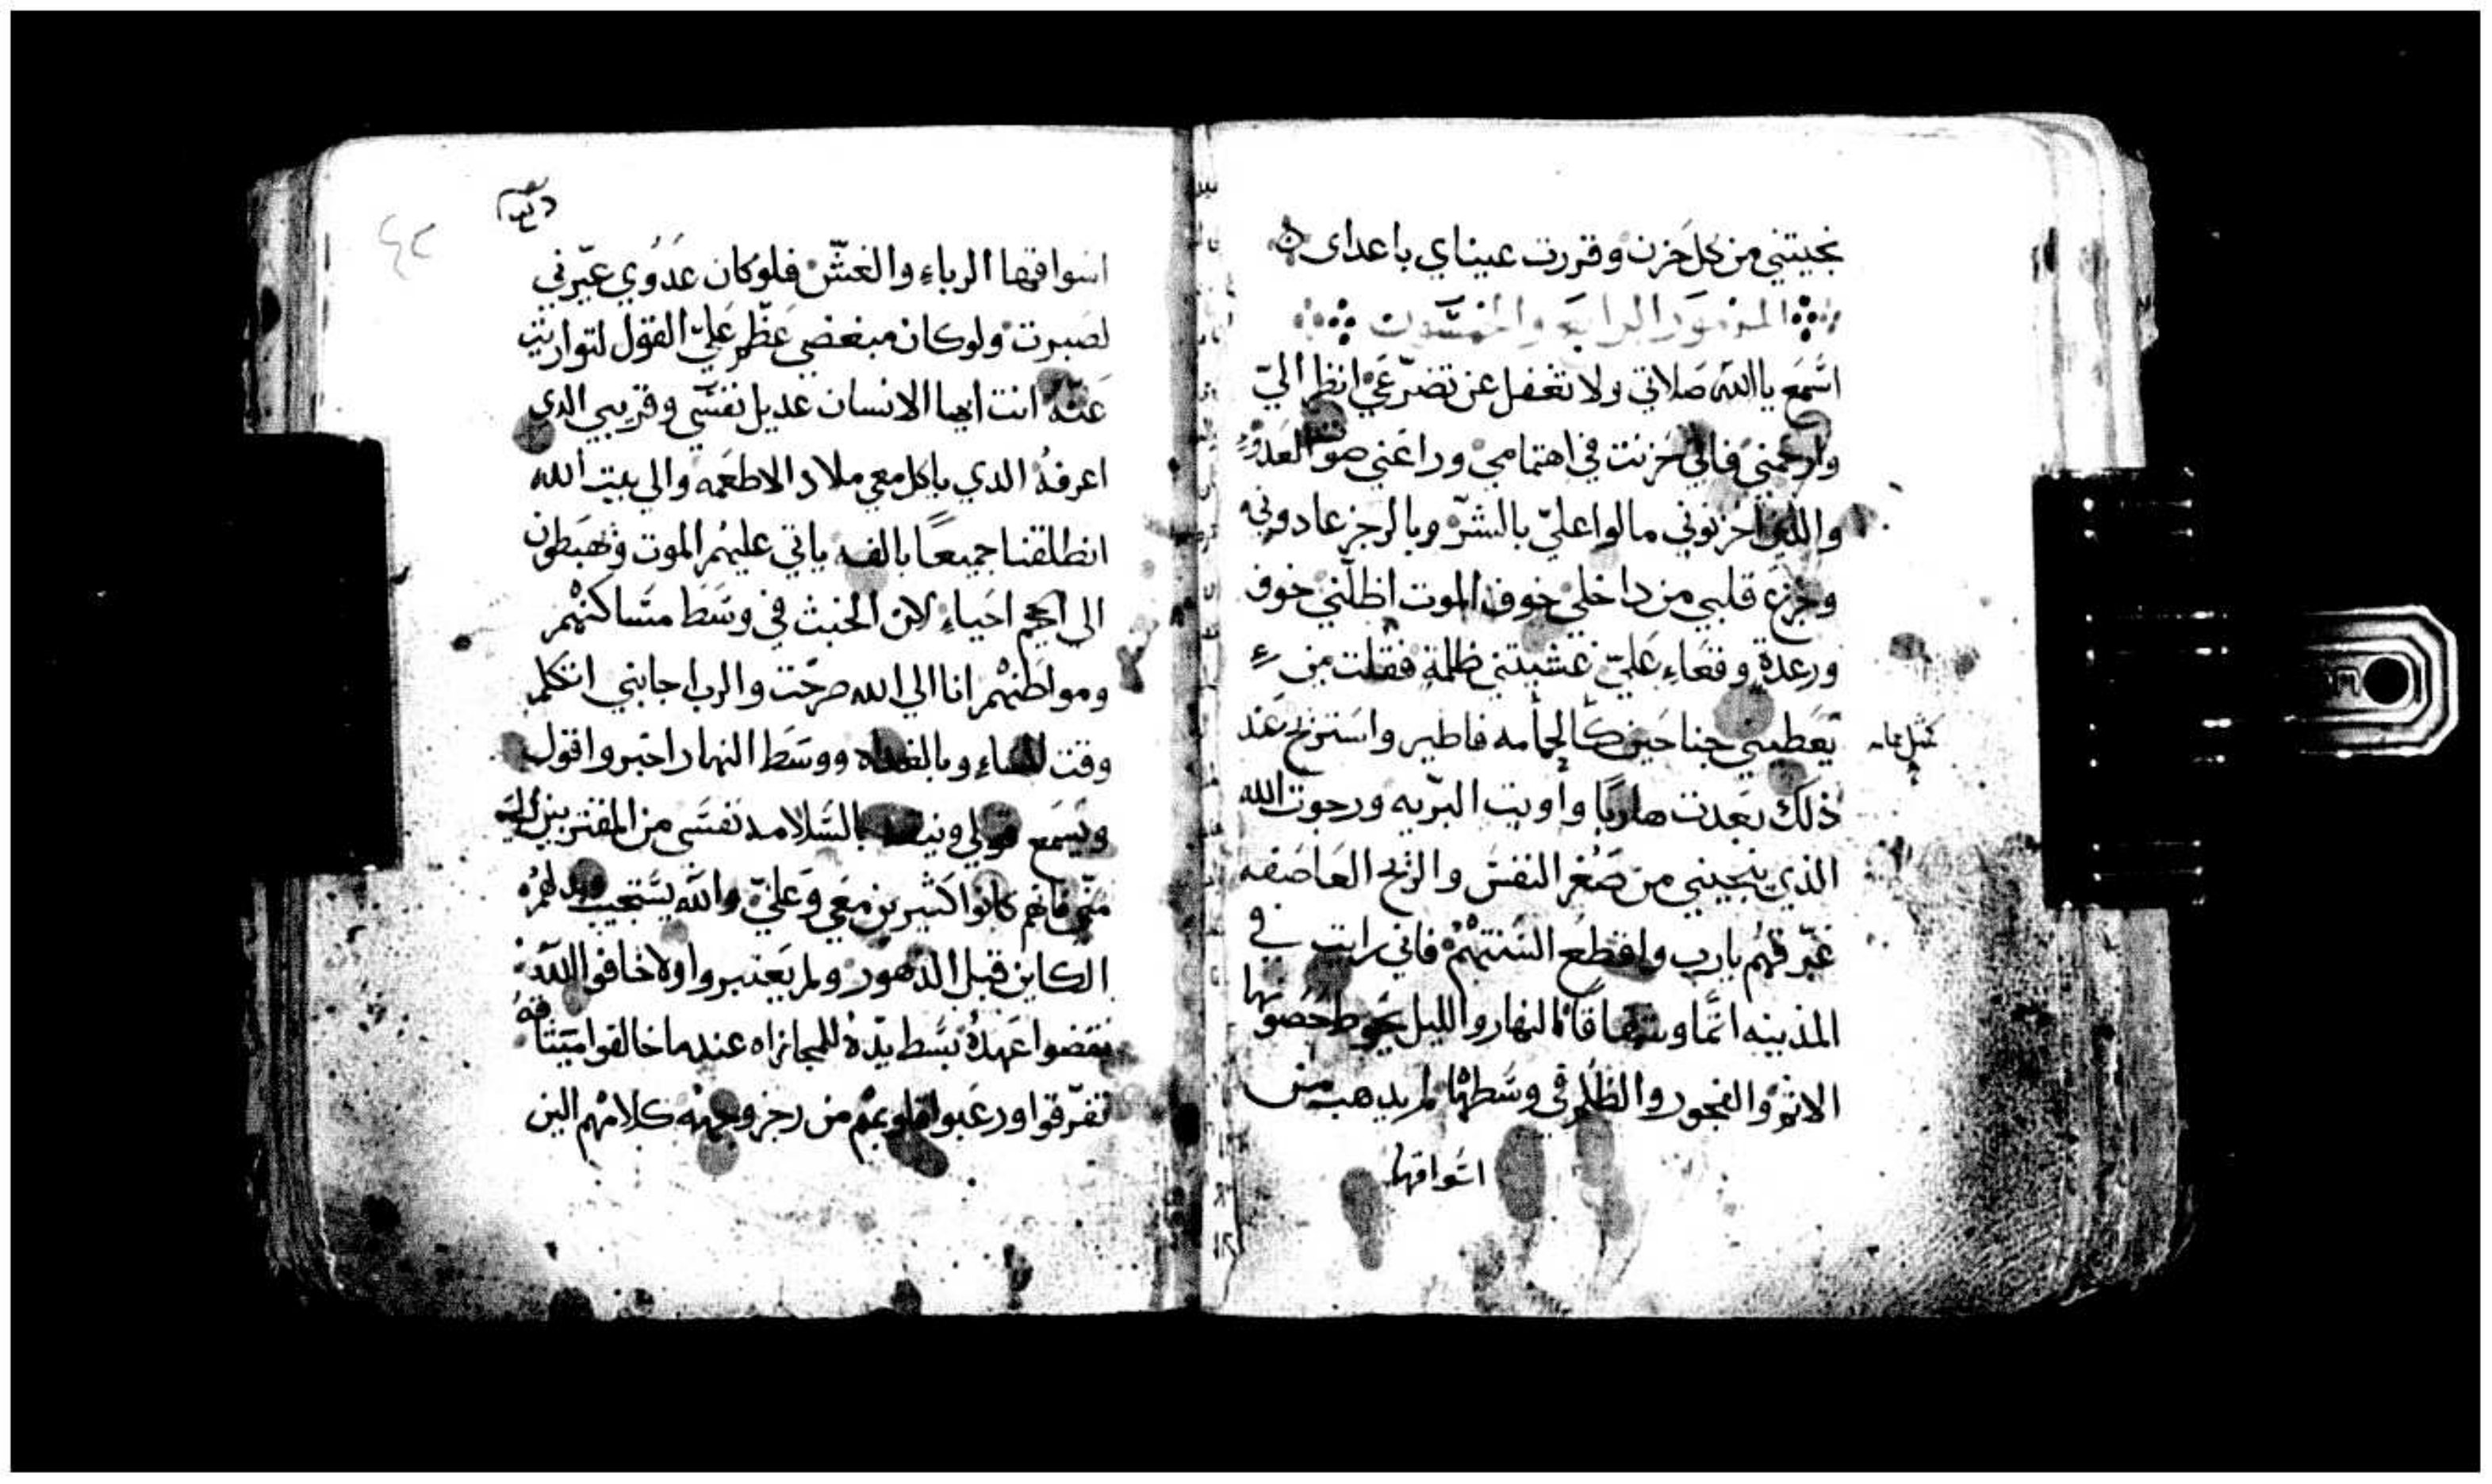 نجيتني من كل حزن وقررت عيناي باعداى
المزمور الرابع والخمسون
اسمع يا الله صلاتي ولا تغفل عن تضرعي انظر اليّ
وارحمني فاني حزنت في اهتمامي وراعني صوت العدو
والذين احزنوني مالوا عليّ بالشر وبالرجز عادوني
وجزع قلبي من داخلي خوف الموت اظلني خوف
ورعدة وقعاء عليّ غشيتني ظلمة فقلت من
يعطيني جناحين كالحمامه فاطير واستريح عند
ذلك بعدت هاربًا وأويت البريه ورجوت الله
الذي ينجيني من صغر النفس والريح العاصفه
غرقهم يارب واقطع السنتهم فاني رايت في
المدينه اثما وشقاقا النهار والليل يحوط حصونها
الاثم والفجور والظلم في وسطها لم يذهب من
اسواقها
اسواقها الرباء والغش فلو كان عدوي عيرني
لصبرت ولو كان مبغضي عظم عليّ القول لتواريت
عنه انت ايها الانسان عديل نفسي وقريبي الدي
اعرفه الدي ياكل معي ملاد الاطعمه والي بيت الله
انطلقنا جميعًا بالفه ياتي عليهم الموت ويهبطون
الي الجحيم احياء لان الخبث في وسط مساكنهم
ومواطنهم انا الي الله صرخت والرب اجابني اتكلم
وقت المساء وبالغداه ووسط النهار اخبر واقول
ويسمع قولي بالسلامه نفسي من المقتربين اليّ
منهم فانهم كانوا كثيرين معي وعليّ والله يستجيب
الكاين قبل الدهور ولم يعتبروا ولا خافوا الله
نقضوا عهده بسط يده للمجازاه عندما خالفوا ميثاقه
تفرقوا ورعبوا قلوبهم من رجز وجهه كلامهم الين